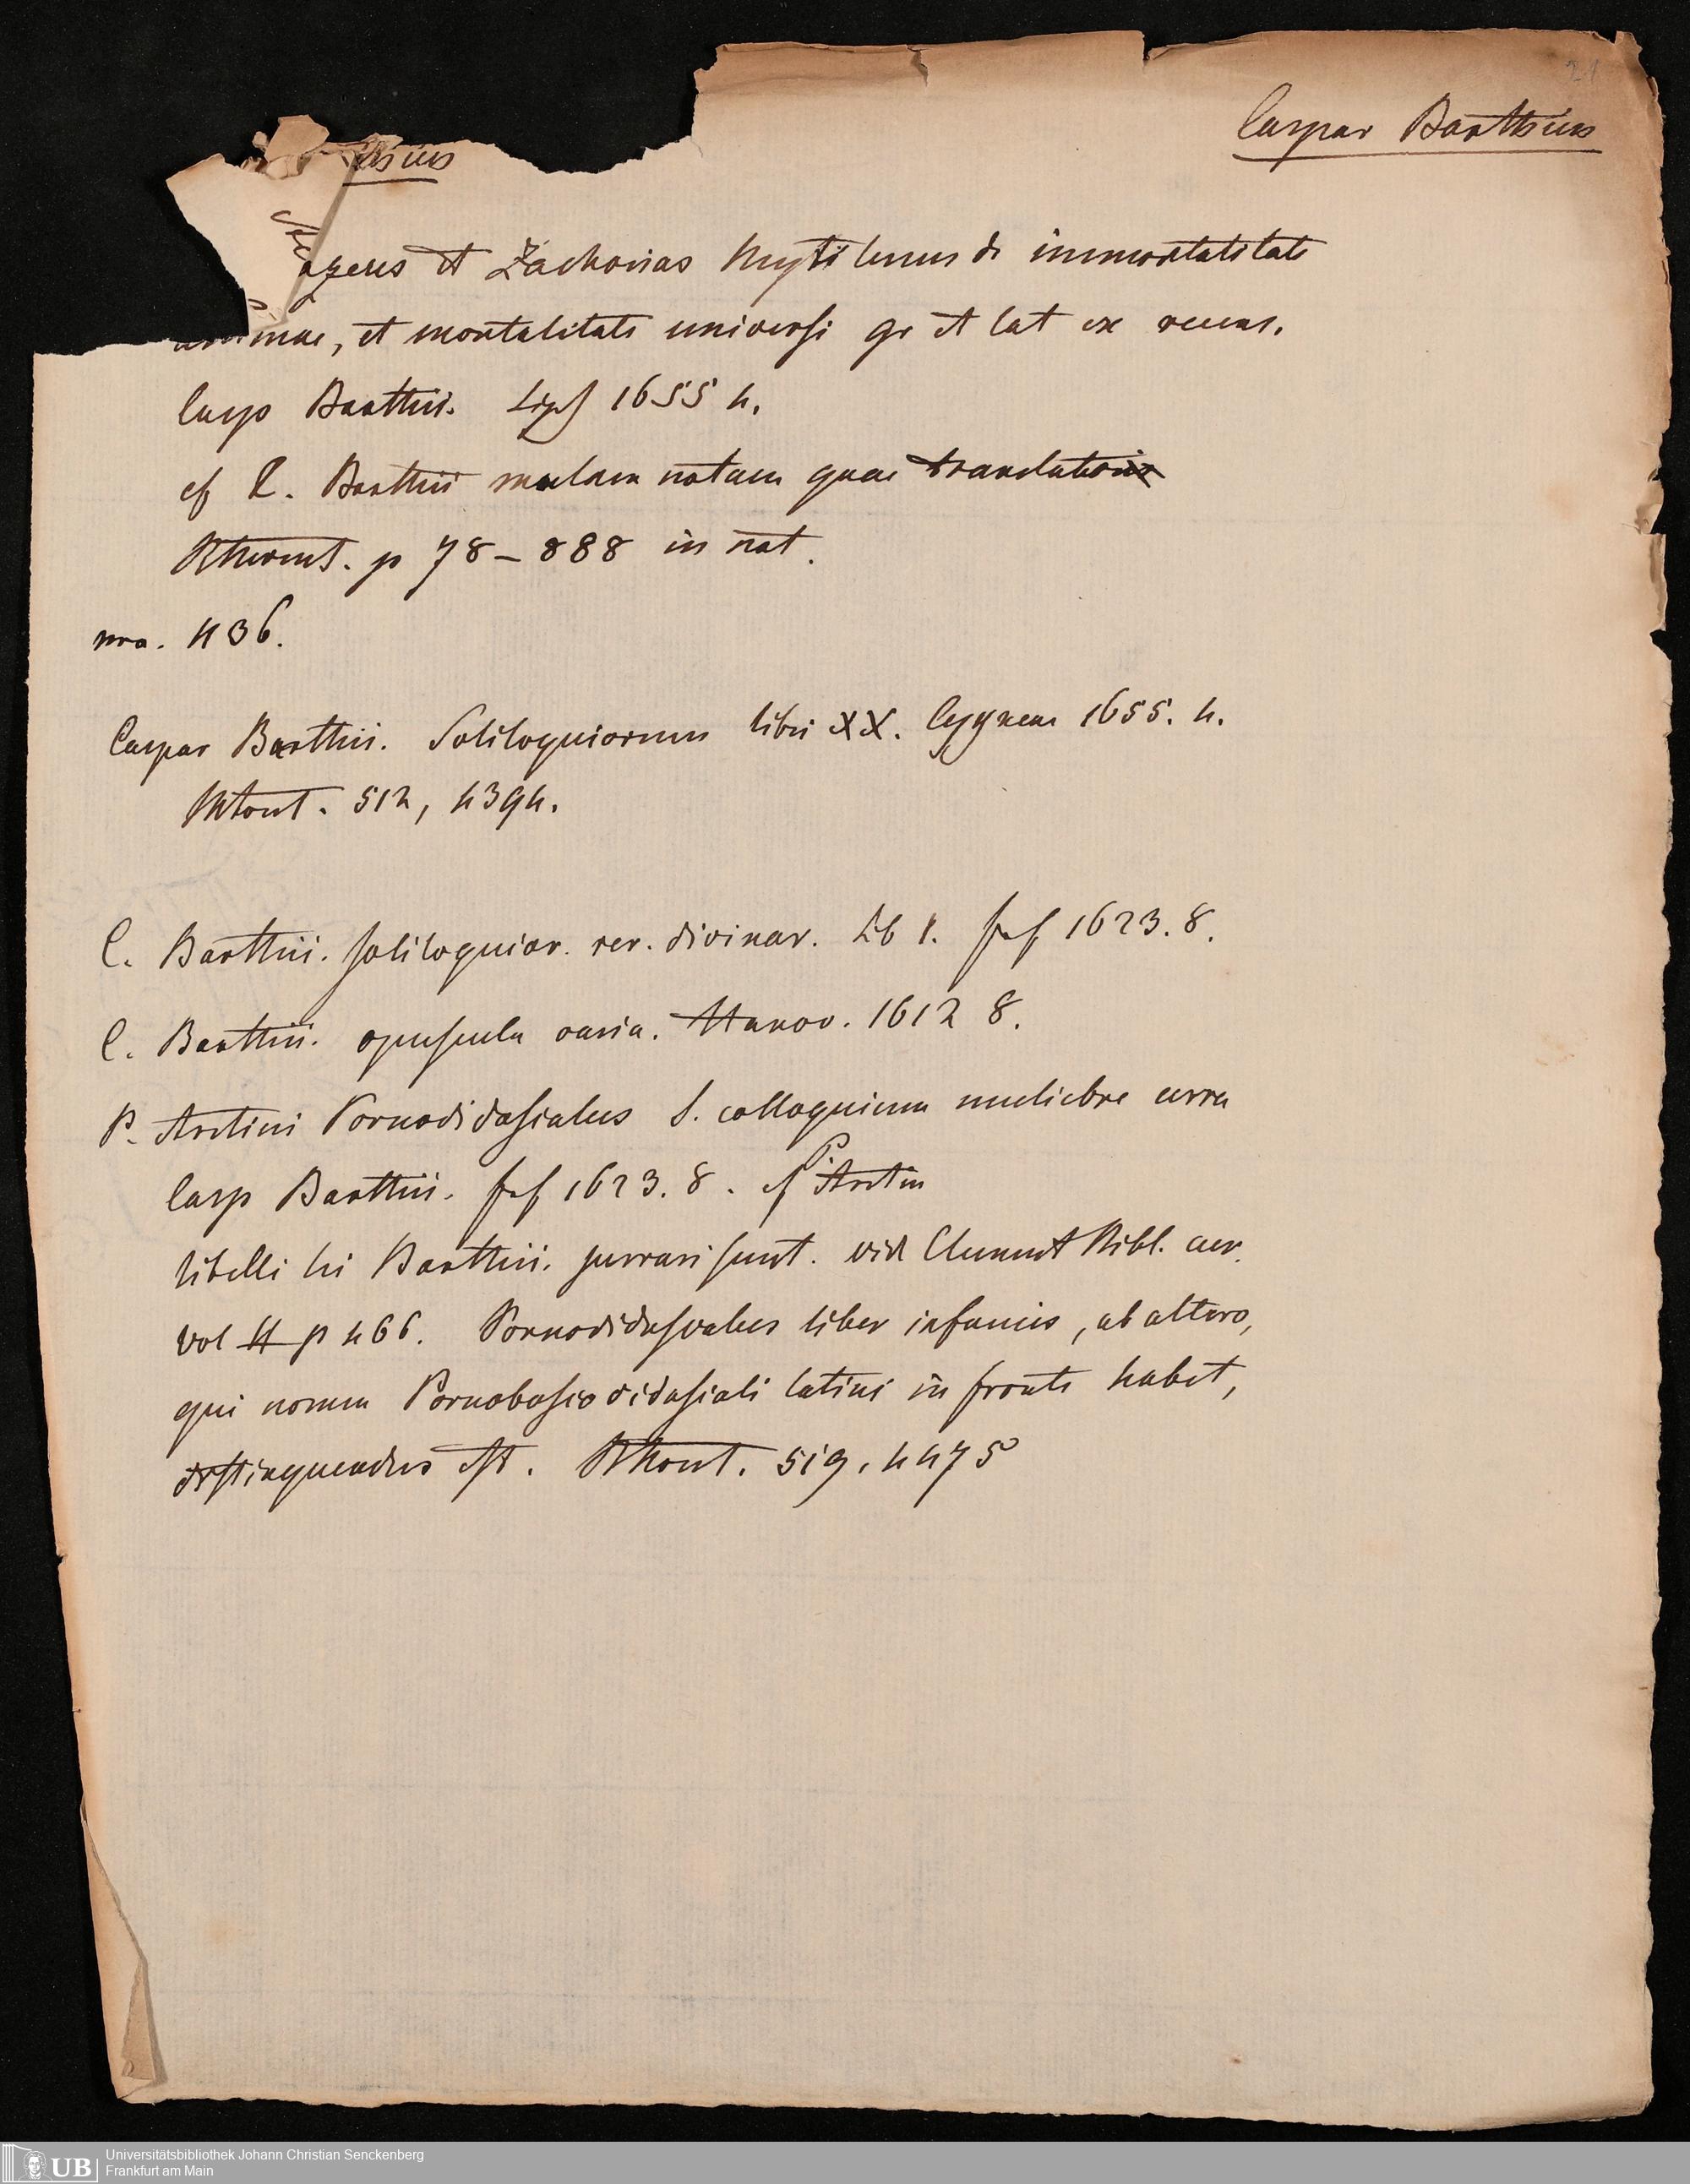 21
Caspar Barthius
et Zacharias Mytilenus de immortalitate
et mortalitate universi gr et lat ex recens.
Casp Barthii. Lips 1655 4.
cf Barthii malam notam quae translationis
p 78-888 in not.
nra. 436.
Caspar Barthii. Soliloquiorum libri XX. Cygneae 1655. 4.
512, 4394.
C. Barthii. soliloquior. rer. divinar. Lib 1. frf 1623. 8.
C. Barthii. opuscula varia. Hanov. 1612 8.
P. Aretini Pornodidascalus S. colloquium muliebre cura
Casp Barthii. frf 1623. 8. cf P. Aretin
libelli hi Barthii. perrari sunt. vid Clement Bibl. cur.
vol II p 466. Pornodidascalus liber infamis, ab altero,
qui nomen Pornoboscodidascali latini in fronte habet,
distinguendus est. 519. 4475
UB
Universitätsbibliothek Johann Christian Senckenberg
Frankfurt am Main